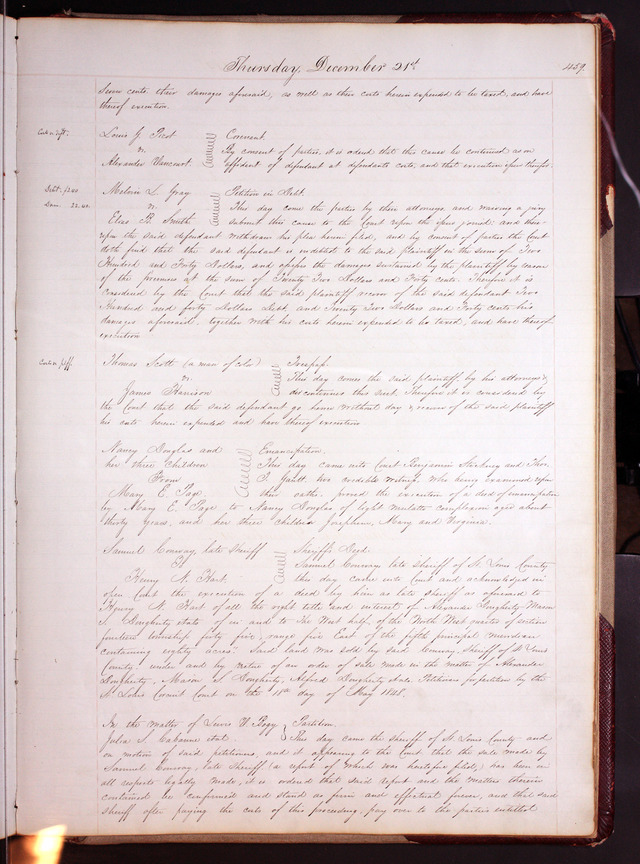 Thursday, December 21st
459
Seven cents their damages aforesaid, as well as their costs herein expended to be taxed, and have
thereof execution.
Louis G. Picot
vs.
Alexander
Covenant.
By consent of parties, it is ordered that this cause be continued as on
affidavit of defendant at defendants costs, and that execution issue therefor.
Debt $240
Dam. 22.40
Melvin L. Gray
vs.
Elias B. Smith
Petition in Debt.
This day come the parties by their attorneys, and waiving a jury
submit this cause to the Court upon the issue joined: and there-
upon the said defendant withdraws his plea herein filed, and by consent of parties the Court
doth find that the said defendant is indebted to the said plaintiff in the sum of Two
Hundred and Forty Dollars, and assess the damages sustained by the plaintiff by reason
of the premises at the sum of Twenty Two Dollars and Forty cents. Therefore it is
considered by the Court that the said plaintiff recover of the said defendant Two
Hundred and forty Dollars Debt, and Twenty Two Dollars and Forty cents his
damages aforesaid, together with his costs herein expended to be taxed, and have thereof
execution
Thomas Scott (a man of color)
vs.
James Harrison
Trespass.
This day comes the said plaintiff by his attorney &
discontinues this suit. Therefore it is considered by
the Court that the said defendant go hence without day & recover of the said plaintiff
his costs herein expended and have thereof execution
Nancy Douglas and
her three Children
From
Mary E. Page
Emancipation.
This day came into Court Benjamin and Thos.
J. Gantt two credible witnesses, who being examined upon
their oaths, proved the execution of a deed of emancipation
by Mary E. Page to Nancy Douglas of light mulatto complexion aged about
thirty years, and her three children Josephine, Mary and Virginia.
Samuel Conway, late Sheriff
To
Henry N. Hart
Sheriff's Deed.
Samuel Conway late sheriff of St. Louis County
this day came into Court and acknowledged in
open Court the execution of a deed by him as late Sheriff as aforesaid to
Henry N. Hart of all the right title and interest of Alexander Dougherty Mason
S. Dougherty et al. of in and to The West half of the North West quarter of section
fourteen township forty five, range five East of the fifth principal meridian
containing eighty acres. Said land was sold by said Conway, Sheriff of St Louis
County, under and by virtue of an order of sale made in the matter of Alexander
Dougherty, Mason S. Dougherty, Alfred Dougherty et als. Petitioners for partition by the
St. Louis Circuit Court on the 18th day of May 1848.
In the matter of Lewis W. Bogy
Julia S. Cabanne et al.
Partition.
This day came the sheriff of St. Louis County and
on motion of said petitioners, and it appearing to the Court that the sale made by
Samuel Conway, late Sheriff (a report of which was heretofore filed,) has been in
all respects legally made, it is ordered that said report and the matters therein
contained be confirmed and stand as firm and effectual forever, and that said
sheriff after paying the costs of this proceeding, pay over to the parties entitled